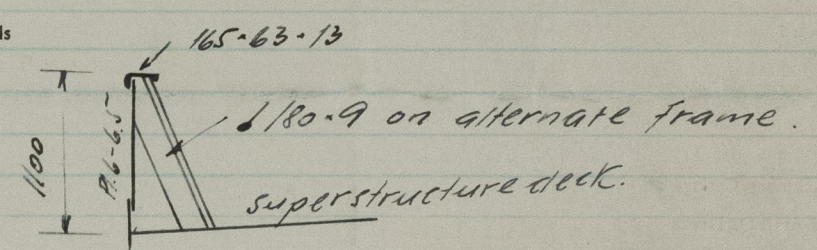 ls
165·63·13
180·9 on alternate frame.
1100
Pl.6-6.5
superstructure deck.